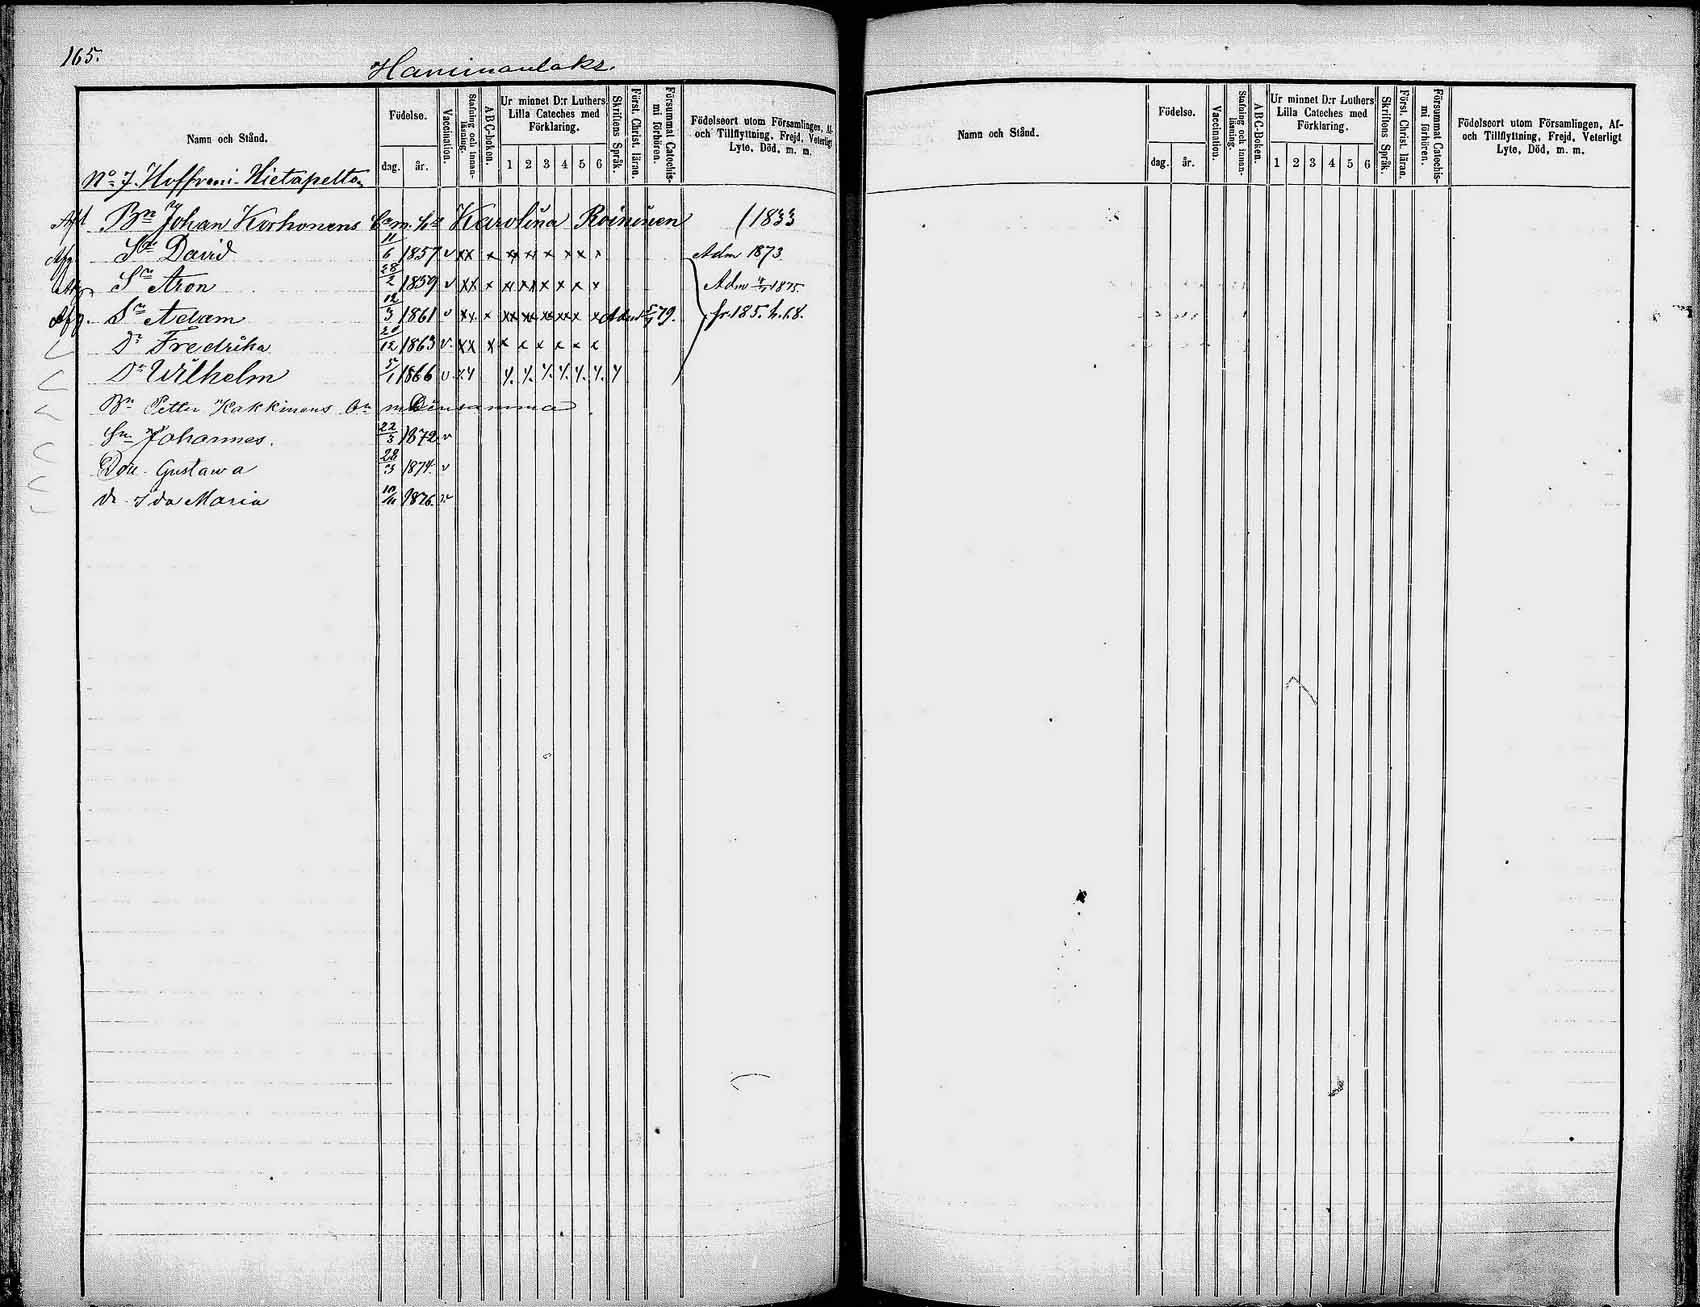 165.
Haminanlaks.
Namn och Stånd.
Födelse.
dag. år.
Vaccination.
Stafning och innanläsning.
ABC-boken.
Ur minnet D:r Luthers Lilla Cateches med Förklaring.
1 2 3 4 5 6
Skriftens Språk.
Först. Christ. läran.
Försummat Catechismi förhören.
Födelseort utom Församlingen, Af- och Tillflyttning, Frejd, Veterligt Lyte, Död, m. m.
No 7. Hoffreni-Hietapelto
Bn Johan Korhonens Karolina Roininen (1833
Afg. Sn David 11/6 1857 v xx x xx xx x x x x Adm 1873
Sn Aron 28/2 1859 v xx x x x x x x x Adm 1875.
Afg. Sn Adam 12/3 1861 v xx x xx xx xx xx x x 79. fr. 185. h. 68.
Dr Fredrika 20/12 1863 v. xx x x x x x x x
Dr Wilhelm 5/1 1866 v
Bn Petter Kakkinens densamma
Sn Johannes. 22/3 1872 v
Don Gustava 28/3 1874. v
dr Ida Maria 1876. v
Namn och Stånd.
Födelse.
dag. år.
Vaccination.
Stafning och innanläsning.
ABC-Boken.
Ur minnet D:r Luthers Lilla Cateches med Förklaring.
1 2 3 4 5 6
Skriftens Språk.
Först. Christ. läran.
Försummat Catechismi förhören.
Födelseort utom Församlingen, Af- och Tillflyttning, Frejd, Veterligt Lyte, Död, m. m.